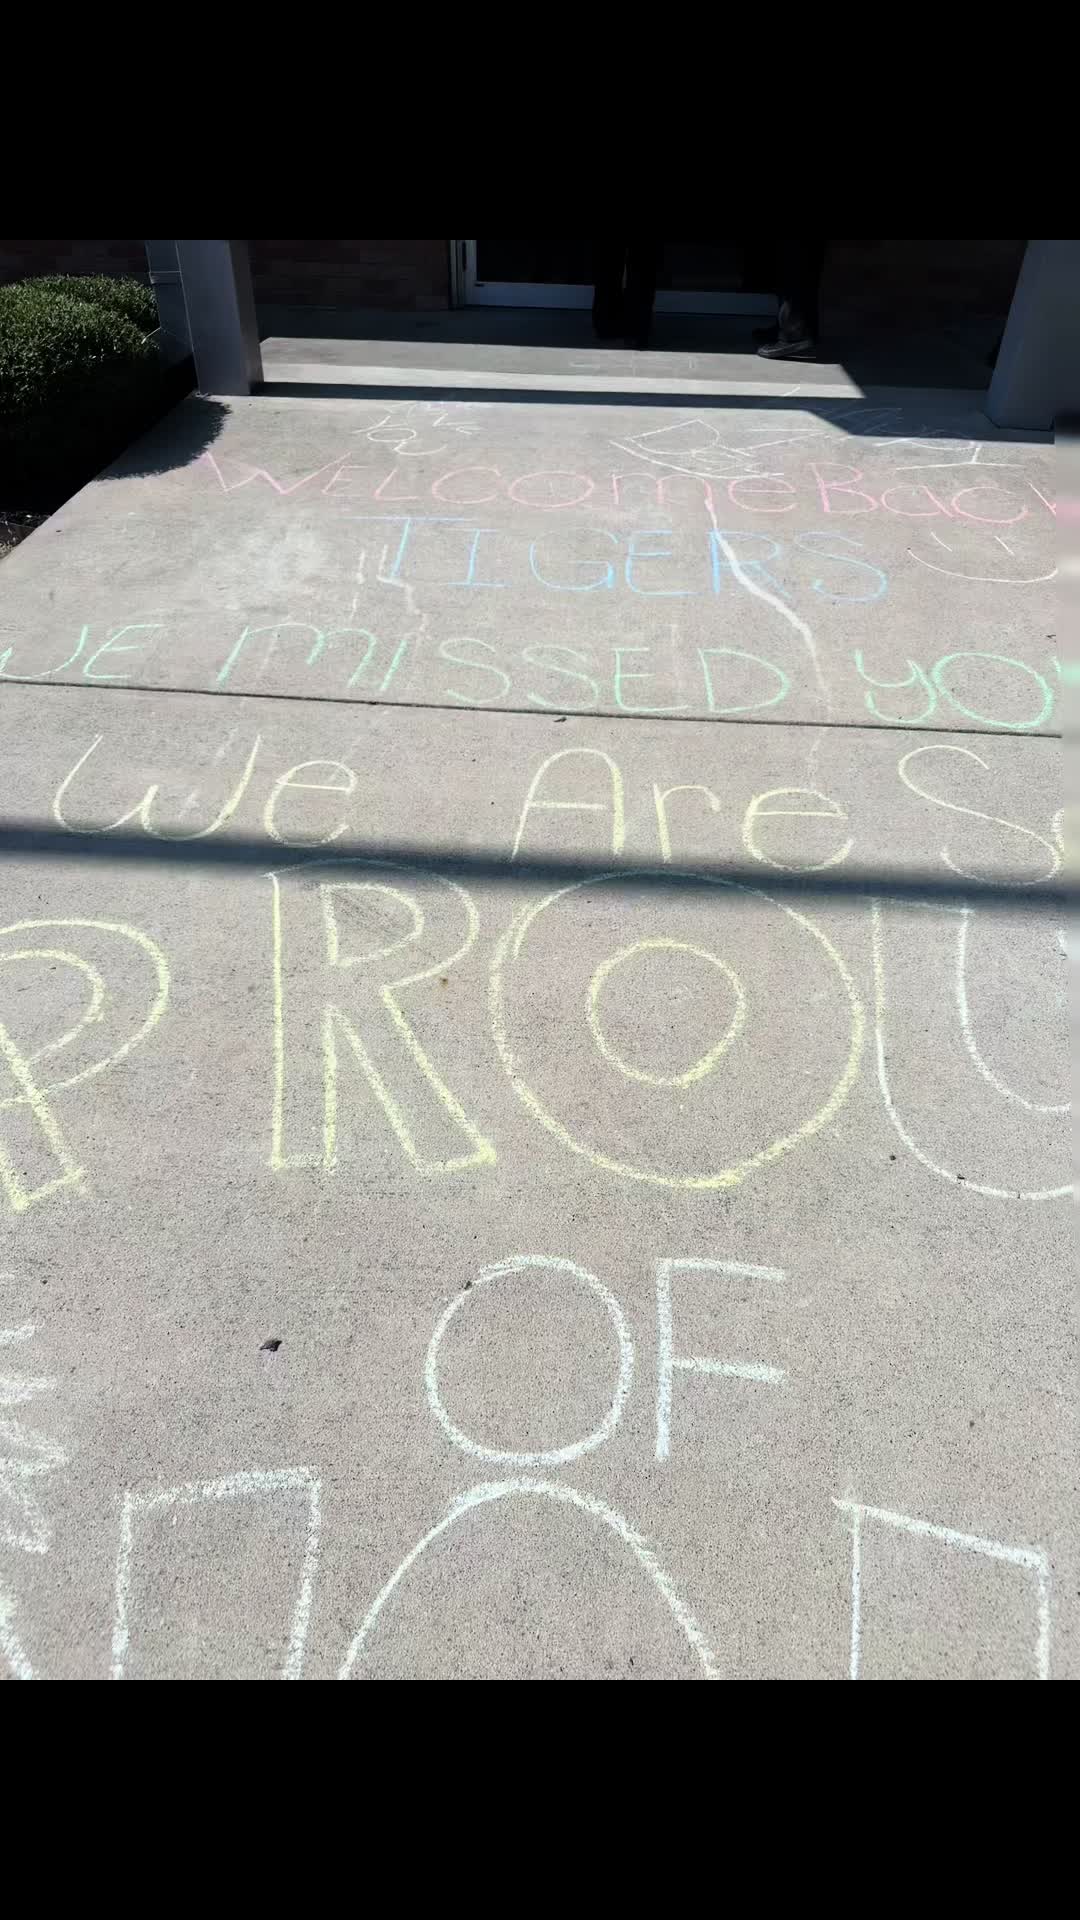 WELcomeBack
TIGERS
WE MISSED YOU
We Are So
PROU
OF
YOU